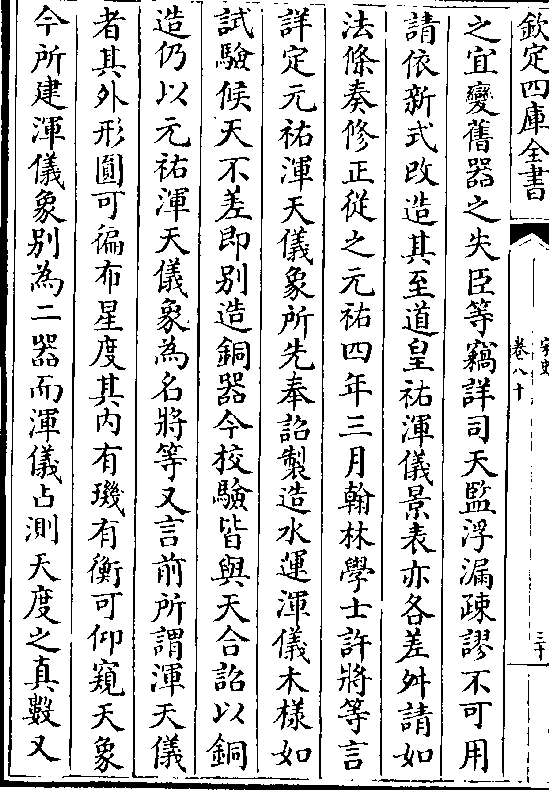 欽定四庫全書
宋史
卷八十
三十
之宜變舊器之失臣等竊詳司天監浮漏疎謬不可用
請依新式改造其至道皇祐渾儀景表亦各差舛請如
法條奏修正從之元祐四年三月翰林學士許將等言
詳定元祐渾天儀象所先奉詔製造水運渾儀木樣如
試驗候天不差即别造銅器今校驗皆與天合詔以銅
造仍以元祐渾天儀象為名將等又言前所謂渾天儀
者其外形圓可徧布星度其内有璣有衡可仰窺天象
今所建渾儀象别為二器而渾儀占測天度之真數又